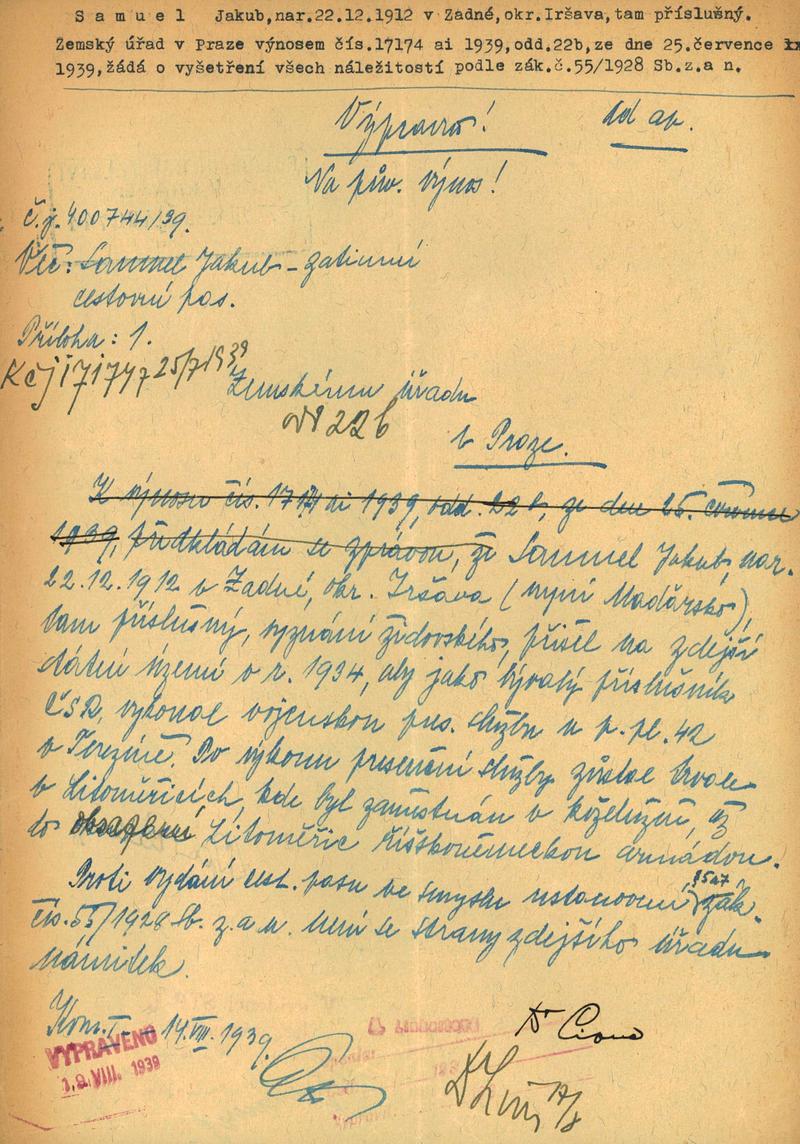 S a m u e l Jakub,nar.22.12.1912 v Zadné,okr.Iršava,tam příslušný.
Zemský úřad v Praze výnosem čís.17174 ai 1939,odd.22b,ze dne 25.července
1939,žádá o vyšetření všech náležitostí podle zák.č.55/1928 Sb.z.a n.
Výpravna! ad ap.
Na pův. výnos!
Č.j. 400744/39.
Věc: Samuel Jakub - zatimní
cestovní pas.
Příloha: 1.
K čj 17174 z 25/7 1939
Zemskému úřadu
odd 22b
v Praze.
K výnosu čís. 17174 ai 1939, odd. 22b, ze dne 25. července
1939, předkládám se zprávou, že Samuel Jakub, nar.
22.12.1912 v Zadné, okr. Iršava (nyní Maďarsko),
tam příslušný, vyznání židovského, přišel na zdejší
státní území v r. 1934, aby jako bývalý příslušník
ČSR, vykonal vojenskou pres. službu u p. pl. 42
v Terezíně. Po výkonu presenční služby zůstal trvale
v Litoměřicích, kde byl zaměstnán v koželužně, až
do obsazení Litoměřic říšskoněmeckou armádou.
Proti vydání cest. pasu ve smyslu ustanovení zák.
čís. 55/1928 Sb. z. a n. není se strany zdejšího úřadu
námitek.
14.VIII. 1939.
VYPRAVENO
VIII. 1939